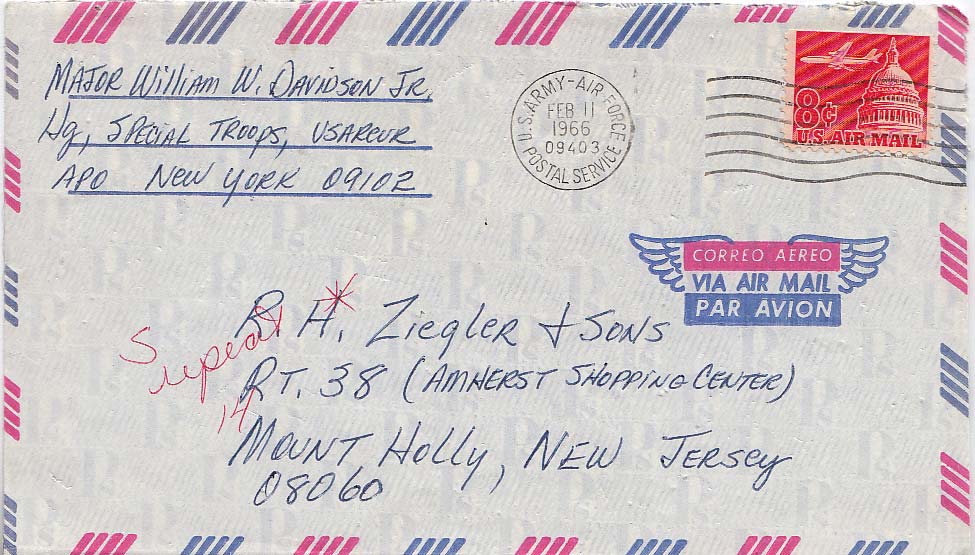 MAJOR WILLIAM W. DAVIDSON JR.
Hq, SPECIAL TROOPS, USAREUR
APO NEW YORK 09102
U.S. ARMY-AIR FORCE
FEB 11
1966
09403
POSTAL SERVICE
8¢
U.S. AIR MAIL
CORREO AEREO
VIA AIR MAIL
PAR AVION
R. H. Ziegler & Sons
RT. 38 (AMHERST SHOPPING CENTER)
14
MOUNT Holly, NEW JERSEY
08060